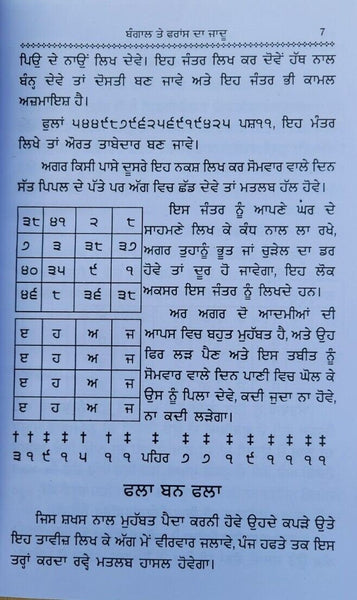 ਬੰਗਾਲ ਤੇ ਫਰਾਂਸ ਦਾ ਜਾਦੂ 7
ਪਿਉ ਦੇ ਨਾਉਂ ਲਿਖ ਦੇਵੇ। ਇਹ ਜੰਤਰ ਲਿਖ ਕਰ ਦੋਵੇਂ ਹੱਥ ਨਾਲ
ਬੰਨ੍ਹ ਦੇਵੇ ਤਾਂ ਦੋਸਤੀ ਬਣ ਜਾਵੇ ਅਤੇ ਇਹ ਜੰਤਰ ਭੀ ਕਾਮਲ
ਅਜ਼ਮਾਇਸ਼ ਹੈ।
ਫੁਲਾਂ ੫੪੪੯੮੭੯੬੨੫੬੧੯੪੨੫ ਪਸ਼੧੧, ਇਹ ਮੰਤਰ
ਲਿਖੇ ਤਾਂ ਔਰਤ ਤਾਬੇਦਾਰ ਬਣ ਜਾਵੇ।
ਅਗਰ ਕਿਸੀ ਪਾਸੇ ਦੂਸਰੇ ਇਹ ਨਕਸ਼ ਲਿਖ ਕਰ ਸੋਮਵਾਰ ਵਾਲੇ ਦਿਨ
ਸੱਤ ਪਿਪਲ ਦੇ ਪੱਤੇ ਪਰ ਅੱਗ ਵਿਚ ਛੱਡ ਦੇਵੇ ਤਾਂ ਮਤਲਬ ਹੱਲ ਹੋਵੇ।
੩੮ ੪੧ ੨ ੮
੭ ੩ ੩੮ ੩੭
੪੦ ੩੫ ੯ ੧
੪੬ ੮ ੩੬ ੩੮
ਇਸ ਜੰਤਰ ਨੂੰ ਆਪਣੇ ਘਰ ਦੇ
ਸਾਹਮਣੇ ਲਿਖ ਕੇ ਕੰਧ ਨਾਲ ਲਾ ਰਖੇ,
ਅਗਰ ਤੁਹਾਨੂੰ ਭੂਤ ਜਾਂ ਚੁੜੇਲ ਦਾ ਡਰ
ਹੋਵੇ ਤਾਂ ਦੂਰ ਹੋ ਜਾਵੇਗਾ, ਇਹ ਲੋਕ
ਅਕਸਰ ਇਸ ਜੰਤਰ ਨੂੰ ਲਿਖਦੇ ਹਨ।
ੲ ਹ ਅ ਜ
ੲ ਹ ਅ ਜ
ੲ ਹ ਅ ਜ
ੲ ਹ ਅ ਜ
ਅਰ ਅਗਰ ਦੋ ਆਦਮੀਆਂ ਦੀ
ਆਪਸ ਵਿਚ ਬਹੁਤ ਮੁਹੱਬਤ ਹੈ, ਅਤੇ ਉਹ
ਫਿਰ ਲੜ ਪੈਣ ਅਤੇ ਇਸ ਤਬੀਤ ਨੂੰ
ਸੋਮਵਾਰ ਵਾਲੇ ਦਿਨ ਪਾਣੀ ਵਿਚ ਘੋਲ ਕੇ
ਉਸ ਨੂੰ ਪਿਲਾ ਦੇਵੇ, ਕਦੀ ਜੁਦਾ ਨਾ ਹੋਵੇ,
ਨਾ ਕਦੀ ਲੜੇਗਾ।
† † ‡ † † ‡ ‡ ‡ ‡ ‡ ‡ ‡ ‡ ‡ ‡
੩ ੧ ੯ ੧ ੫ ੧ ੧ ਪਹਿਰ ੭ ੭ ੧ ੯ ੧ ੧ ੧
ਫਲਾ ਬਨ ਫਲਾ
ਜਿਸ ਸ਼ਖਸ ਨਾਲ ਮੁਹੱਬਤ ਪੈਦਾ ਕਰਨੀ ਹੋਵੇ ਉਹਦੇ ਕਪੜੇ ਉਤੇ
ਇਹ ਤਾਵੀਜ਼ ਲਿਖ ਕੇ ਅੱਗ ਮੇਂ ਵੀਰਵਾਰ ਜਲਾਵੇ, ਪੰਜ ਹਫਤੇ ਤਕ ਇਸ
ਤਰ੍ਹਾਂ ਕਰਦਾ ਰਵ੍ਹੇ ਮਤਲਬ ਹਾਸਲ ਹੋਵੇਗਾ।